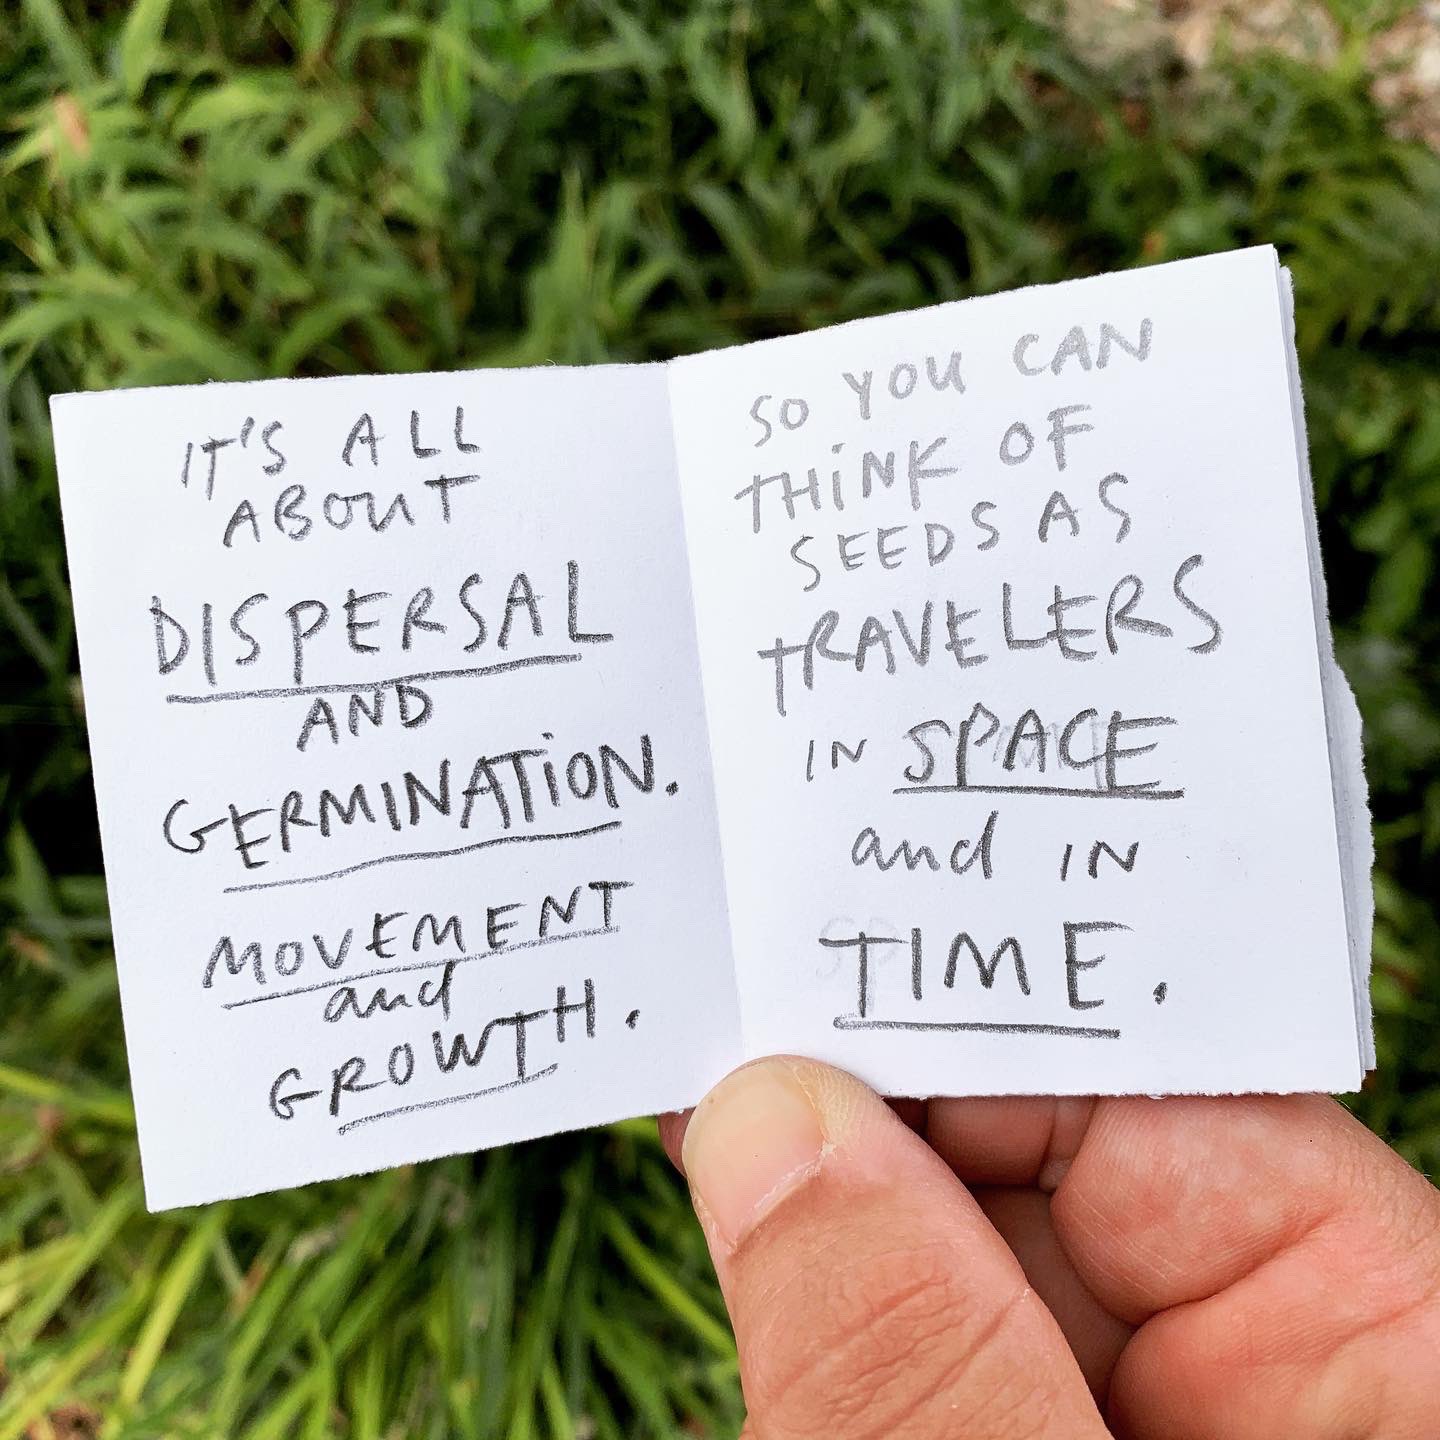 IT'S ALL
ABOUT
DISPERSAL
AND
GERMINATION.
MOVEMENT
and
GROWTH.
SO YOU CAN
THINK OF
SEEDS AS
TRAVELERS
IN SPACE
and IN
TIME.